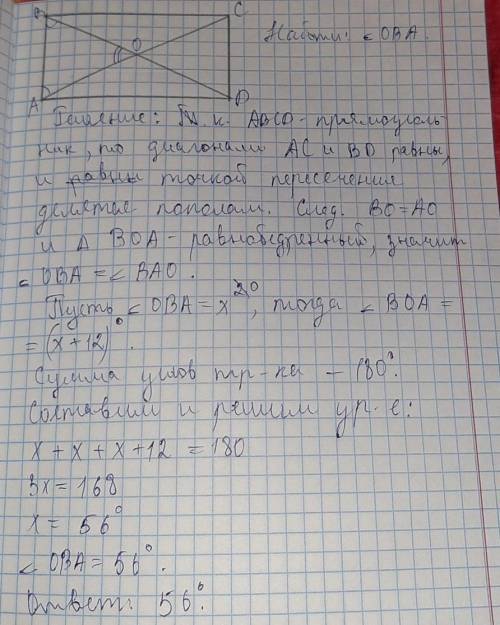 B C
O
Найти: ∠OBA.
A D
Решение: Т. к. ABCD - прямоуголь
ник, то диагонали AC и BD равны,
и равны точкой пересечения
делятся пополам. След. BO = AO
и Δ BOA - равнобедренный, значит
∠ OBA = ∠ BAO.
Пусть ∠ OBA = x°, тогда ∠ BOA =
= (x+12)°.
Сумма углов тр-ка - 180°.
Составим и решим ур-е:
x + x + x + 12 = 180
3x = 168
x = 56°
∠ OBA = 56°.
Ответ: 56°.